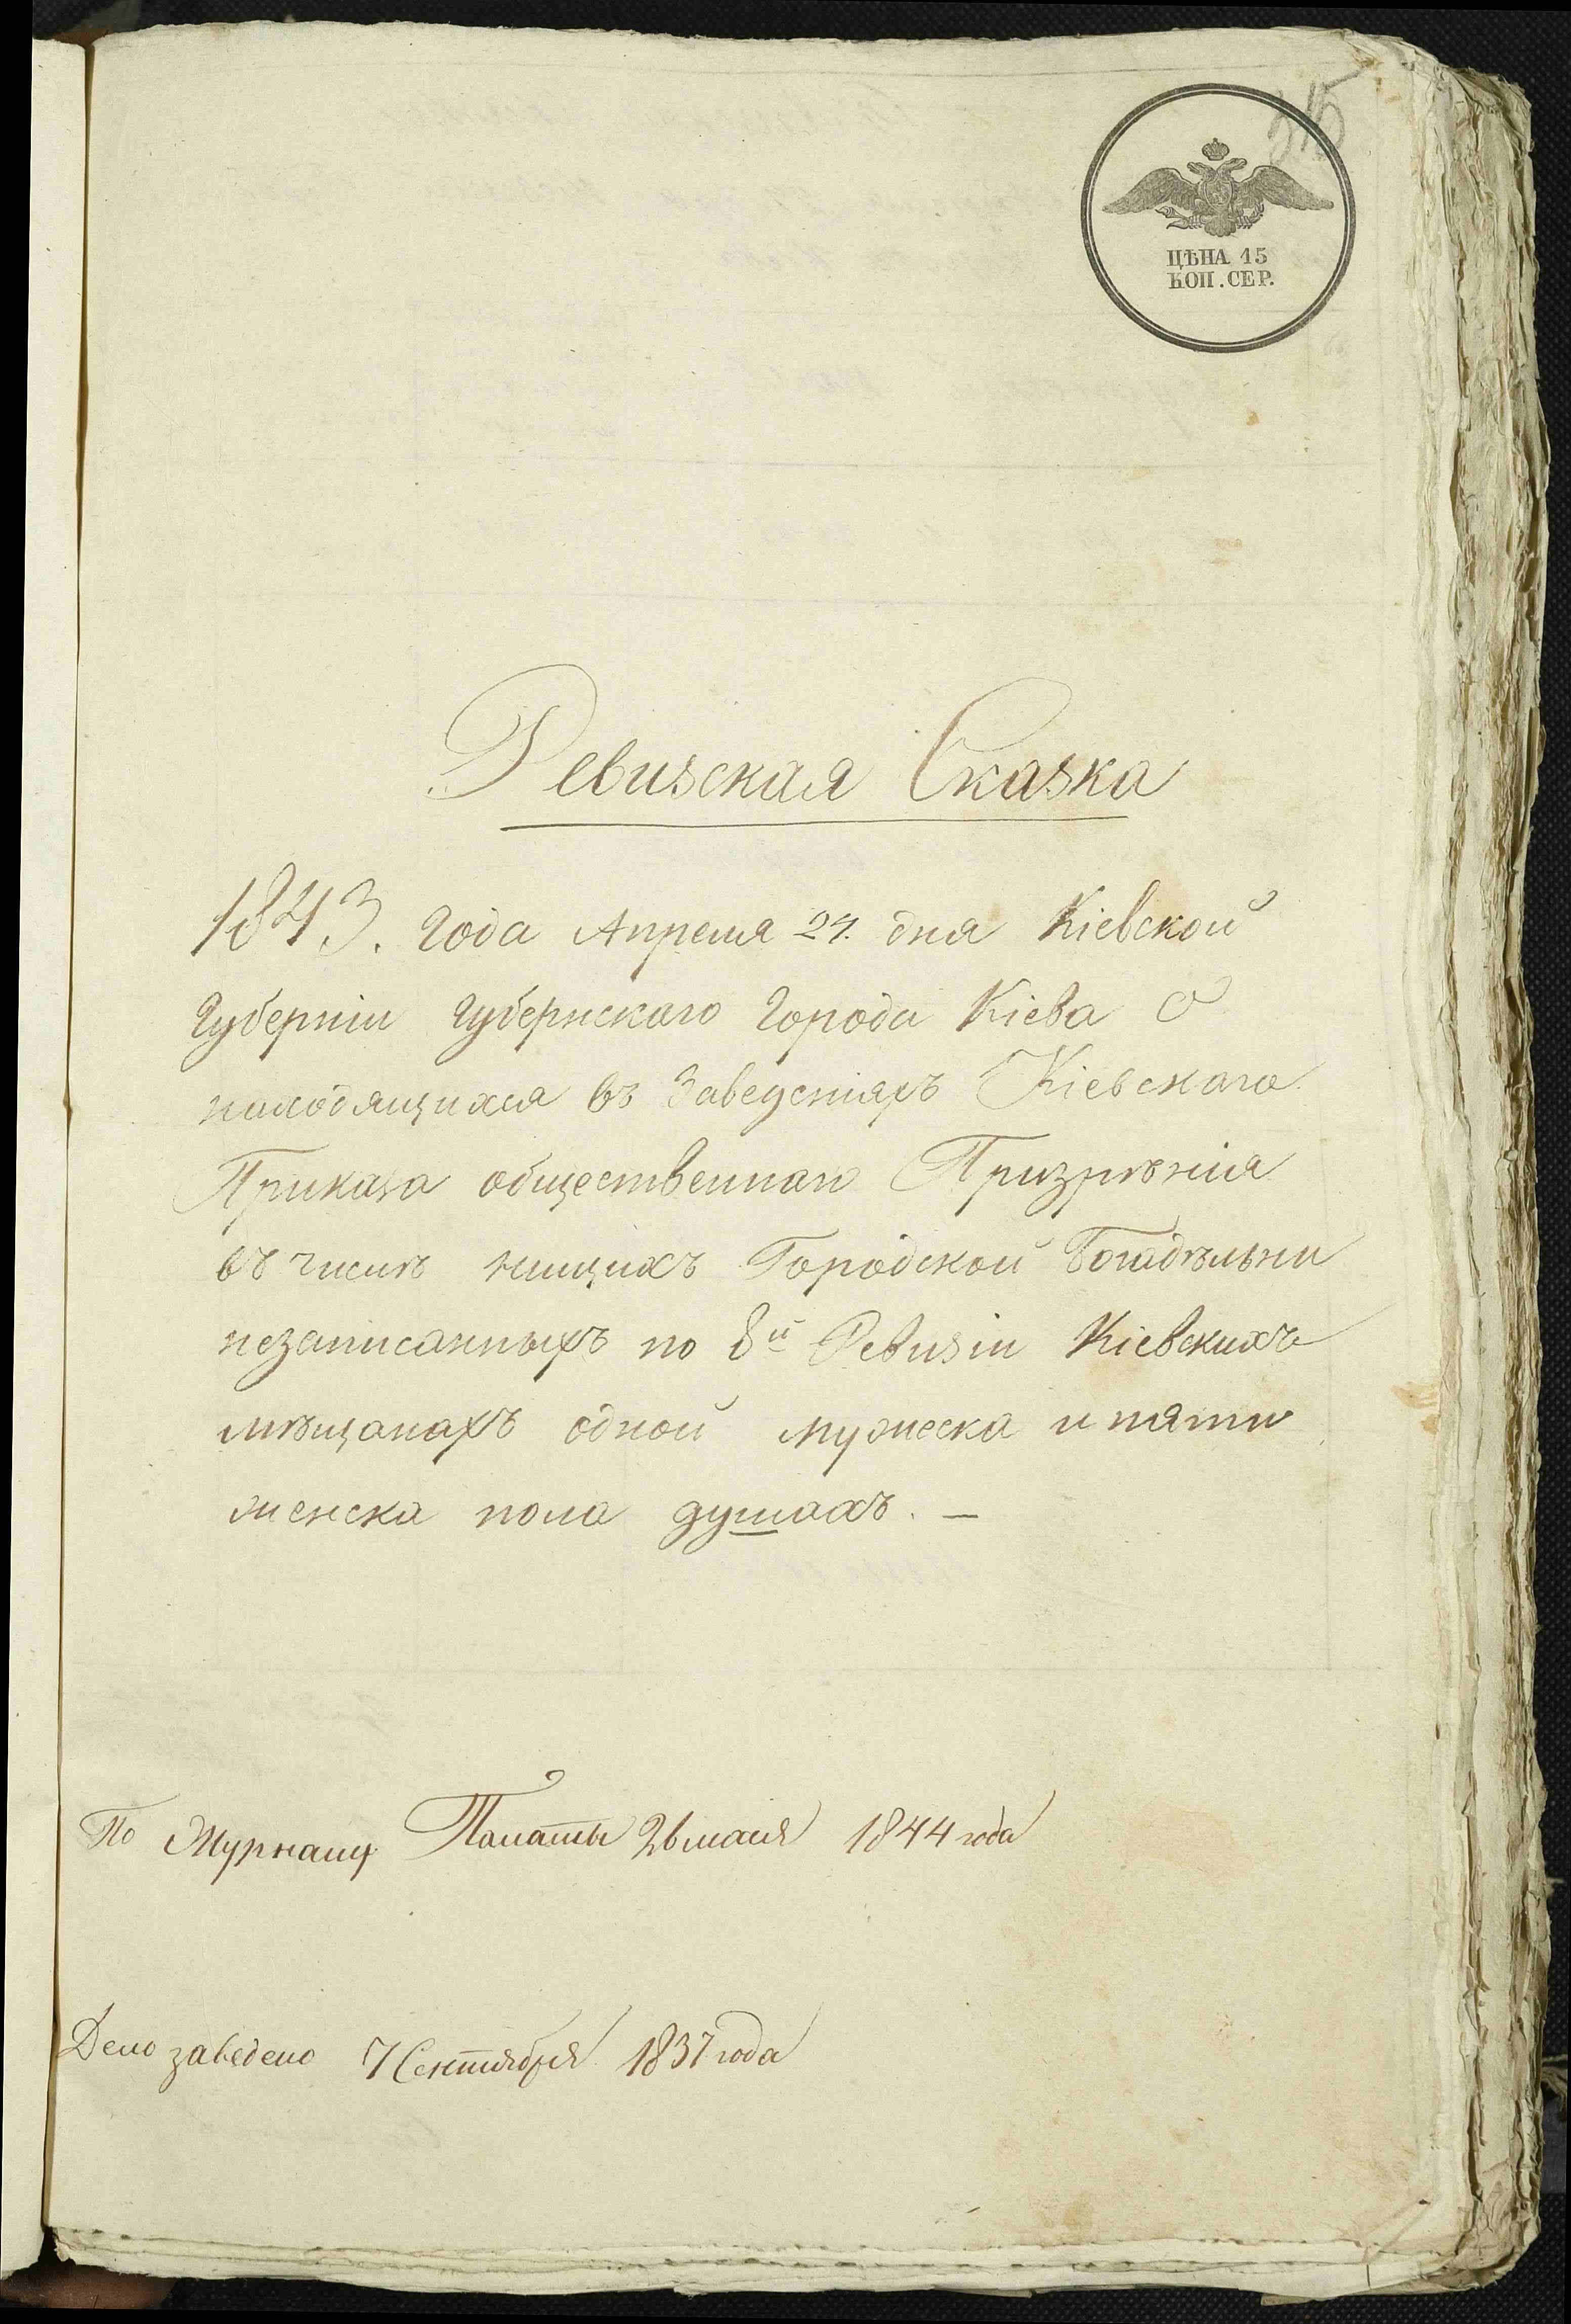 315
ЦѢНА 15
КОП. СЕР.
Ревизская Сказка
1843. года Апреля 24. дня Кіевской
Губерніи Губернскаго Города Кіева о
находящихся въ Заведеніяхъ Кіевскаго
Приказа общественнаго Призрѣнія
въ числѣ нищихъ Городской Богадѣльни
незаписанныхъ по 8й Ревизіи Кіевскихъ
мѣщанахъ одной мужеска и пяти
женска пола душахъ. —
По Журналу Палаты 26 маія 1844 года
Дело заведено 7 Сентября 1837 года